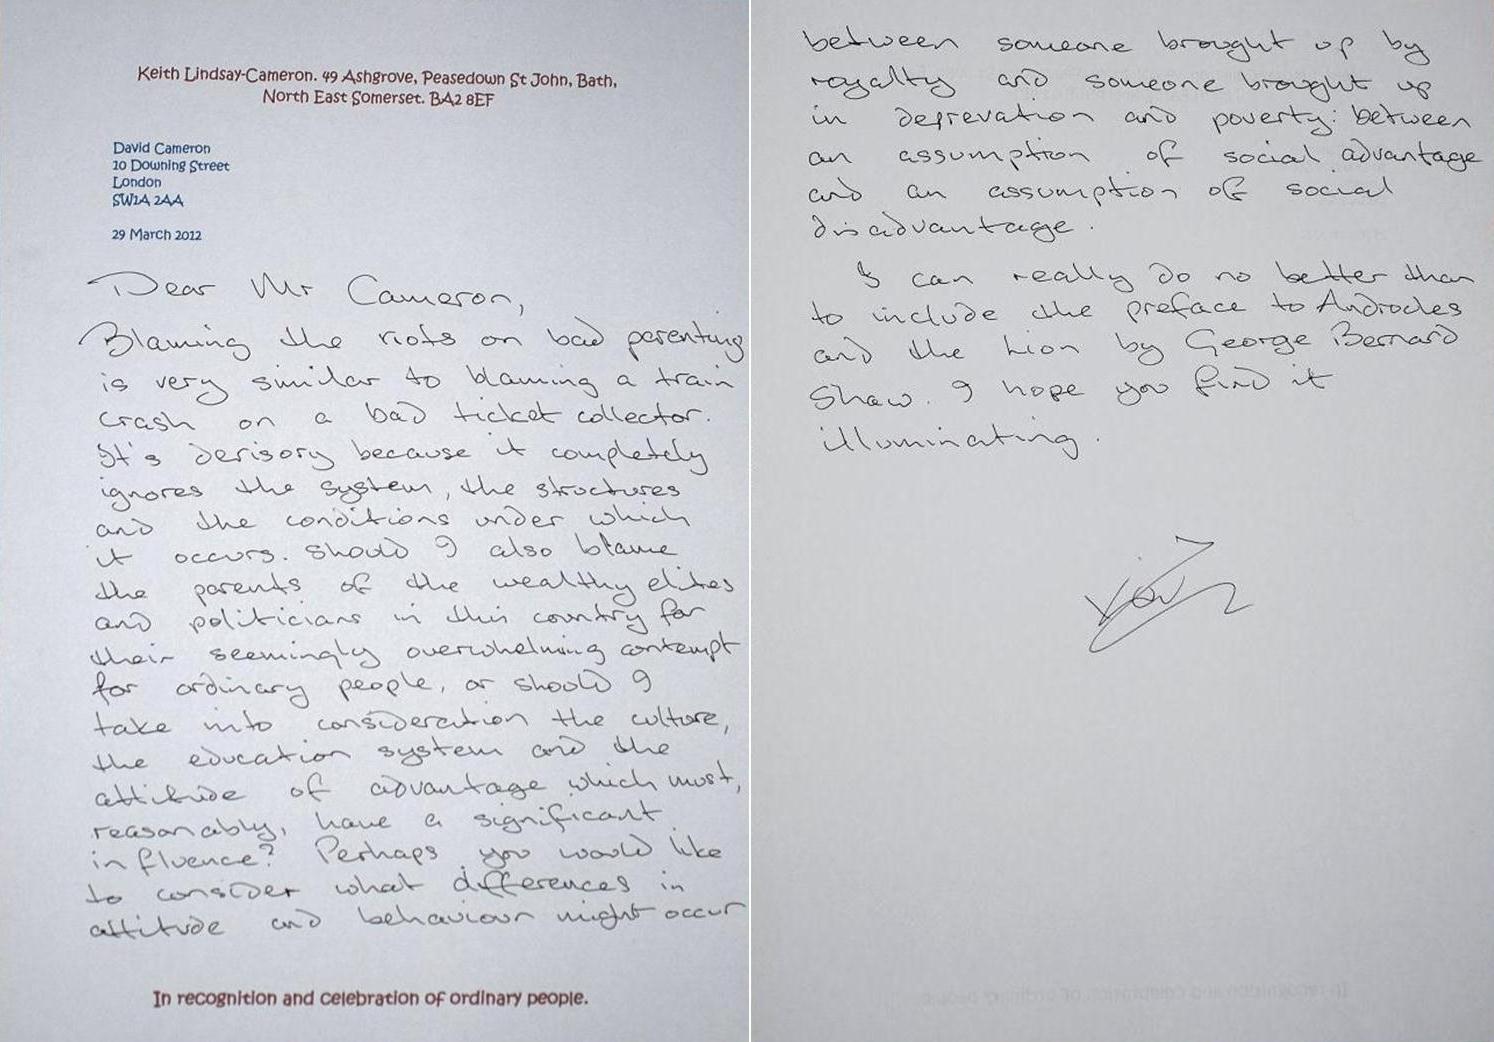 Keith Lindsay-Cameron. 49 Ashgrove, Peasedown St John, Bath,
North East Somerset. BA2 8EF
David Cameron
10 Downing Street
London
SW1A 2AA
29 March 2012
Dear Mr Cameron,
Blaming the riots on bad parenting
is very similar to blaming a train
crash on a bad ticket collector.
It's derisory because it completely
ignores the system, the structures
and the conditions under which
it occurs. Should I also blame
the parents of the wealthy elites
and politicians in this country for
their seemingly overwhelming contempt
for ordinary people, or should I
take into consideration the culture,
the education system and the
attitude of advantage which must,
reasonably, have a significant
influence? Perhaps you would like
to consider what differences in
attitude and behaviour might occur
In recognition and celebration of ordinary people.
between someone brought up by
royalty and someone brought up
in deprevation and poverty: between
an assumption of social advantage
and an assumption of social
disadvantage.
I can really do no better than
to include the preface to Androcles
and the Lion by George Bernard
Shaw. I hope you find it
illuminating.